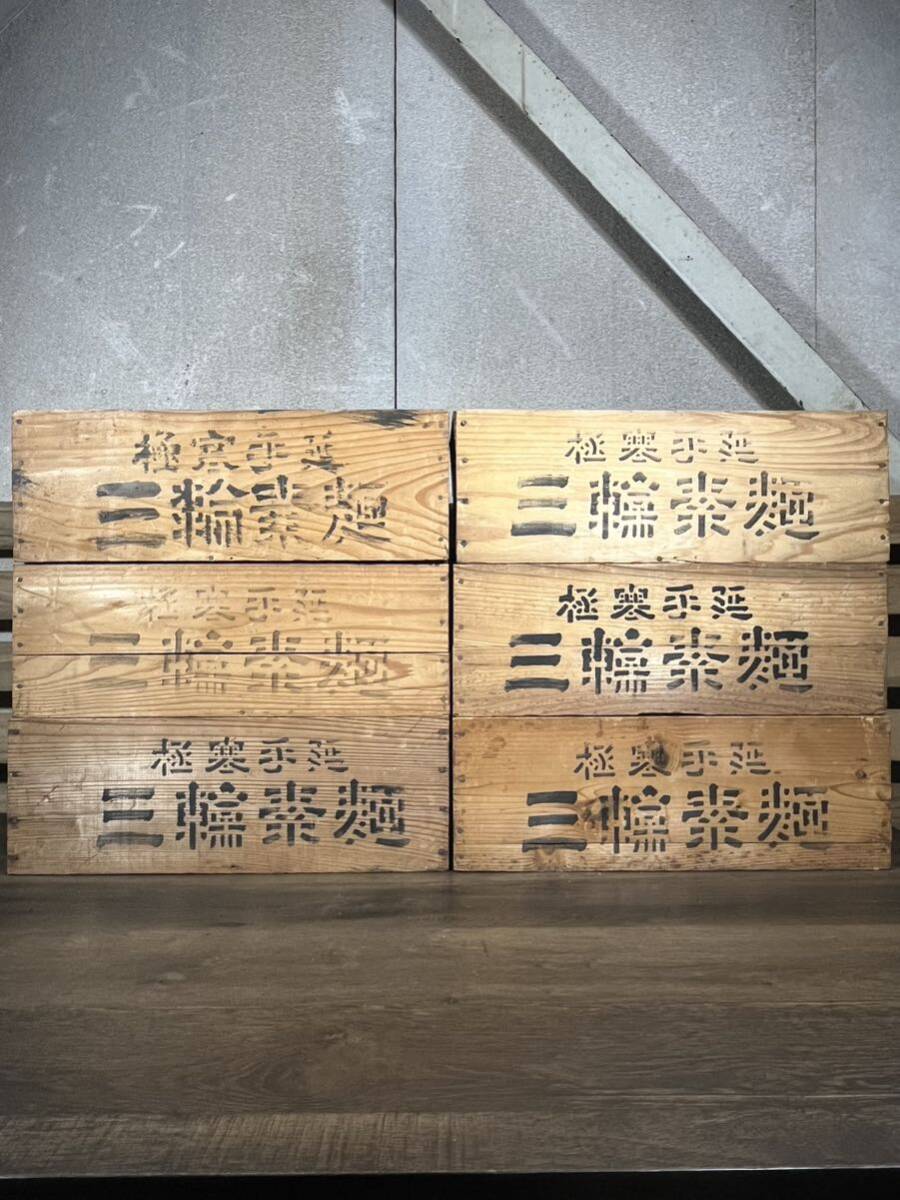 極寒手延
三輪素麺
極寒手延
三輪素麺
極寒手延
三輪素麺
極寒手延
三輪素麺
極寒手延
三輪素麺
極寒手延
三輪素麺